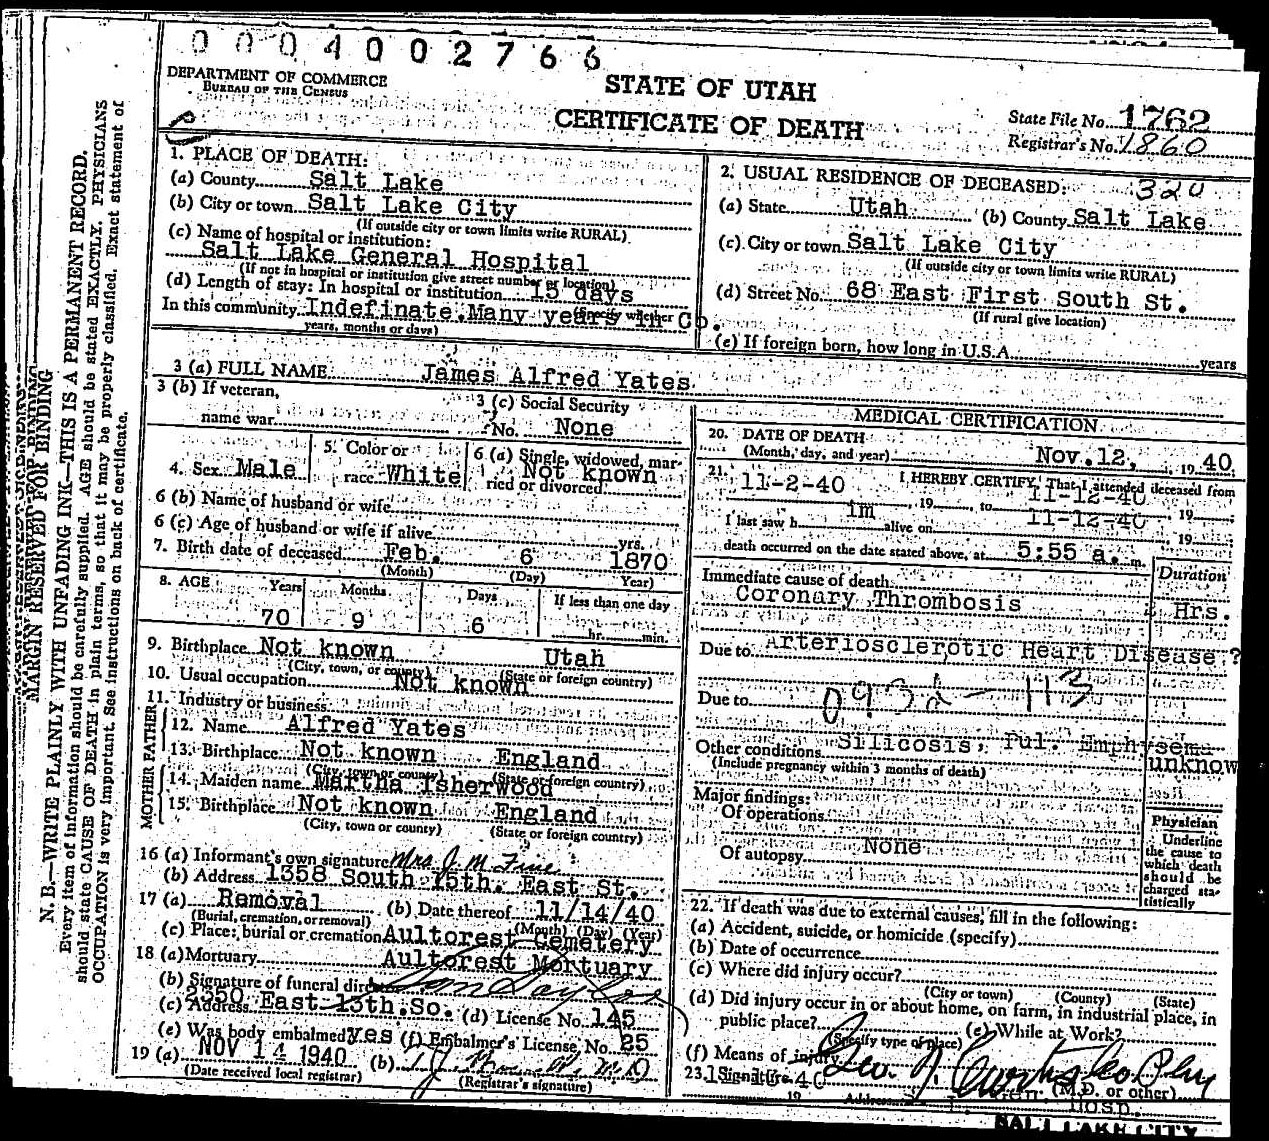 0004002766
DEPARTMENT OF COMMERCE
BUREAU OF THE CENSUS
STATE OF UTAH
CERTIFICATE OF DEATH
State File No. 1762
Registrar's No. 1860
1. PLACE OF DEATH:
(a) County Salt Lake
(b) City or town Salt Lake City
(If outside city or town limits write RURAL)
(c) Name of hospital or institution:
Salt Lake General Hospital
(If not in hospital or institution give street number or location)
(d) Length of stay: In hospital or institution 15 days
(Specify whether
In this community Indefinate. Many years in Co.
years, months or days)
2. USUAL RESIDENCE OF DECEASED: 320
(a) State Utah (b) County Salt Lake
(c) City or town Salt Lake City
(If outside city or town limits write RURAL)
(d) Street No. 68 East First South St.
(If rural give location)
(e) If foreign born, how long in U.S.A. years
3 (a) FULL NAME James Alfred Yates
3 (b) If veteran, name war
3 (c) Social Security No. None
4. Sex Male
5. Color or race White
6 (a) Single, widowed, married or divorced Not known
6 (b) Name of husband or wife
6 (c) Age of husband or wife if alive yrs.
7. Birth date of deceased Feb. 6 1870
(Month) (Day) Year)
8. AGE Years Months Days If less than one day
70 9 6 hr. min.
9. Birthplace Not known Utah
(City, town, or county) (State or foreign country)
10. Usual occupation Not known
11. Industry or business
FATHER
12. Name Alfred Yates
13. Birthplace Not known England
(City, town or county) (State or foreign country)
MOTHER
14. Maiden name Martha Isherwood
15. Birthplace Not known England
(City, town or county) (State or foreign country)
16 (a) Informant's own signature Mrs J. M. Fine
(b) Address 1358 South 15th. East St.
17 (a) Removal (b) Date thereof 11/14/40
(Burial, cremation, or removal) (Month) (Day) (Year)
(c) Place: burial or cremation Aultorest Cemetery
18 (a) Mortuary Aultorest Mortuary
(b) Signature of funeral director
(c) Address East 13th. So. (d) License No. 145
(e) Was body embalmed? yes (f) Embalmer's License No. 25
19 (a) NOV 14 1940 (b)
(Date received local registrar) (Registrar's signature)
MEDICAL CERTIFICATION
20. DATE OF DEATH
(Month, day, and year) Nov. 12, 1940
21. I HEREBY CERTIFY, That I attended deceased from
11-2-40, 19 to 11-12-40, 19
I last saw h im alive on 11-12-40, 19
death occurred on the date stated above, at 5:55 a. m.
Immediate cause of death Duration
Coronary Thrombosis Hrs.
Due to Arteriosclerotic Heart Disease ?
Due to
Other conditions Silicosis, Pul. Emphysema unknow
(Include pregnancy within 3 months of death)
Major findings:
Of operations
Of autopsy None
Physician
Underline the cause to which death should be charged statistically
22. If death was due to external causes, fill in the following:
(a) Accident, suicide, or homicide (specify)
(b) Date of occurrence
(c) Where did injury occur?
(City or town) (County) (State)
(d) Did injury occur in or about home, on farm, in industrial place, in public place?
(Specify type of place) (e) While at Work?
(f) Means of injury
23. Signature (M.D. or other)
Address Gen. Hosp.
SALT LAKE CITY
MARGIN RESERVED FOR BINDING
N. B.—WRITE PLAINLY WITH UNFADING INK—THIS IS A PERMANENT RECORD.
Every item of information should be carefully supplied. AGE should be stated EXACTLY. PHYSICIANS
should state CAUSE OF DEATH in plain terms, so that it may be properly classified. Exact statement of
OCCUPATION is very important. See instructions on back of certificate.